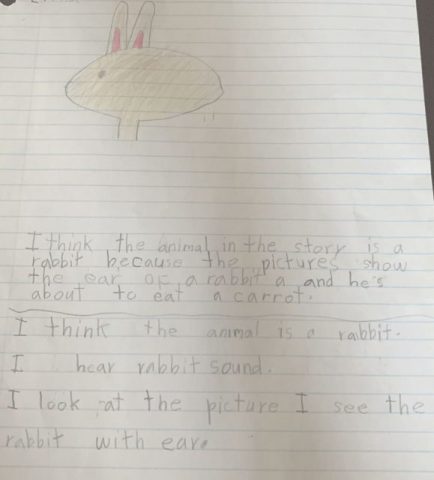 I think the animal in the story is a
rabbit because the pictures show
the ear of a rabbit a and he's
about to eat a carrot.
I think the animal is a rabbit.
I hear rabbit sound.
I look at the picture I see the
rabbit with ear.